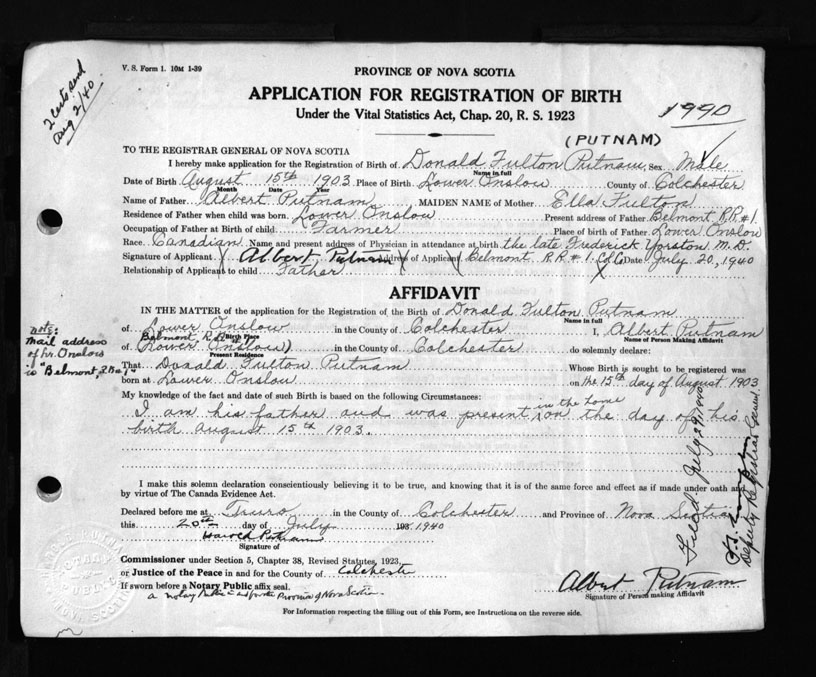 V. S. Form 1. 10M 1-39
2 certs send
Aug 2/40
PROVINCE OF NOVA SCOTIA
APPLICATION FOR REGISTRATION OF BIRTH
Under the Vital Statistics Act, Chap. 20, R. S. 1923
1990
(PUTNAM)
TO THE REGISTRAR GENERAL OF NOVA SCOTIA
I hereby make application for the Registration of Birth of Donald Fulton Putnam Sex Male
Name in full
Date of Birth August 15th 1903 Place of Birth Lower Onslow County of Colchester
Month Date Year
Name of Father Albert Putnam MAIDEN NAME of Mother Ella Fulton
Residence of Father when child was born Lower Onslow Present address of Father Belmont R.R # 1.
Occupation of Father at Birth of child Farmer Place of birth of Father Lower Onslow
Race Canadian Name and present address of Physician in attendance at birth the late Frederick Yorston M.D.
Signature of Applicant Albert Putnam Address of Applicant Belmont R.R # 1. Col Co Date July 20, 1940
Relationship of Applicant to child Father
AFFIDAVIT
IN THE MATTER of the application for the Registration of the Birth of Donald Fulton Putnam
Name in full
of Lower Onslow in the County of Colchester I, Albert Putnam
Birth Place
Name of Person Making Affidavit
Belmont R.R # 1
of (Lower Onslow) in the County of Colchester do solemnly declare:
Present Residence
note:
Mail address
of Lr. Onslow
is "Belmont, R R # 1"
That Donald Fulton Putnam Whose Birth is sought to be registered was
born at Lower Onslow on the 15th day of August 1903
My knowledge of the fact and date of such Birth is based on the following Circumstances:
I am his father and was present in the home on the day of his
birth August 15th 1903.
I make this solemn declaration conscientiously believing it to be true, and knowing that it is of the same force and effect as if made under oath and
by virtue of The Canada Evidence Act.
Declared before me at Truro in the County of Colchester and Province of Nova Scotia
this 20th day of July 193 1940
Harold Putnam
Signature of
Commissioner under Section 5, Chapter 38, Revised Statutes, 1923,
or Justice of the Peace in and for the County of Colchester
If sworn before a Notary Public affix seal.
a Notary Public in and for the Province of Nova Scotia
Albert Putnam
Signature of Person making Affidavit
For Information respecting the filling out of this Form, see Instructions on the reverse side.
Filed July 29, 1940
Deputy Registrar General